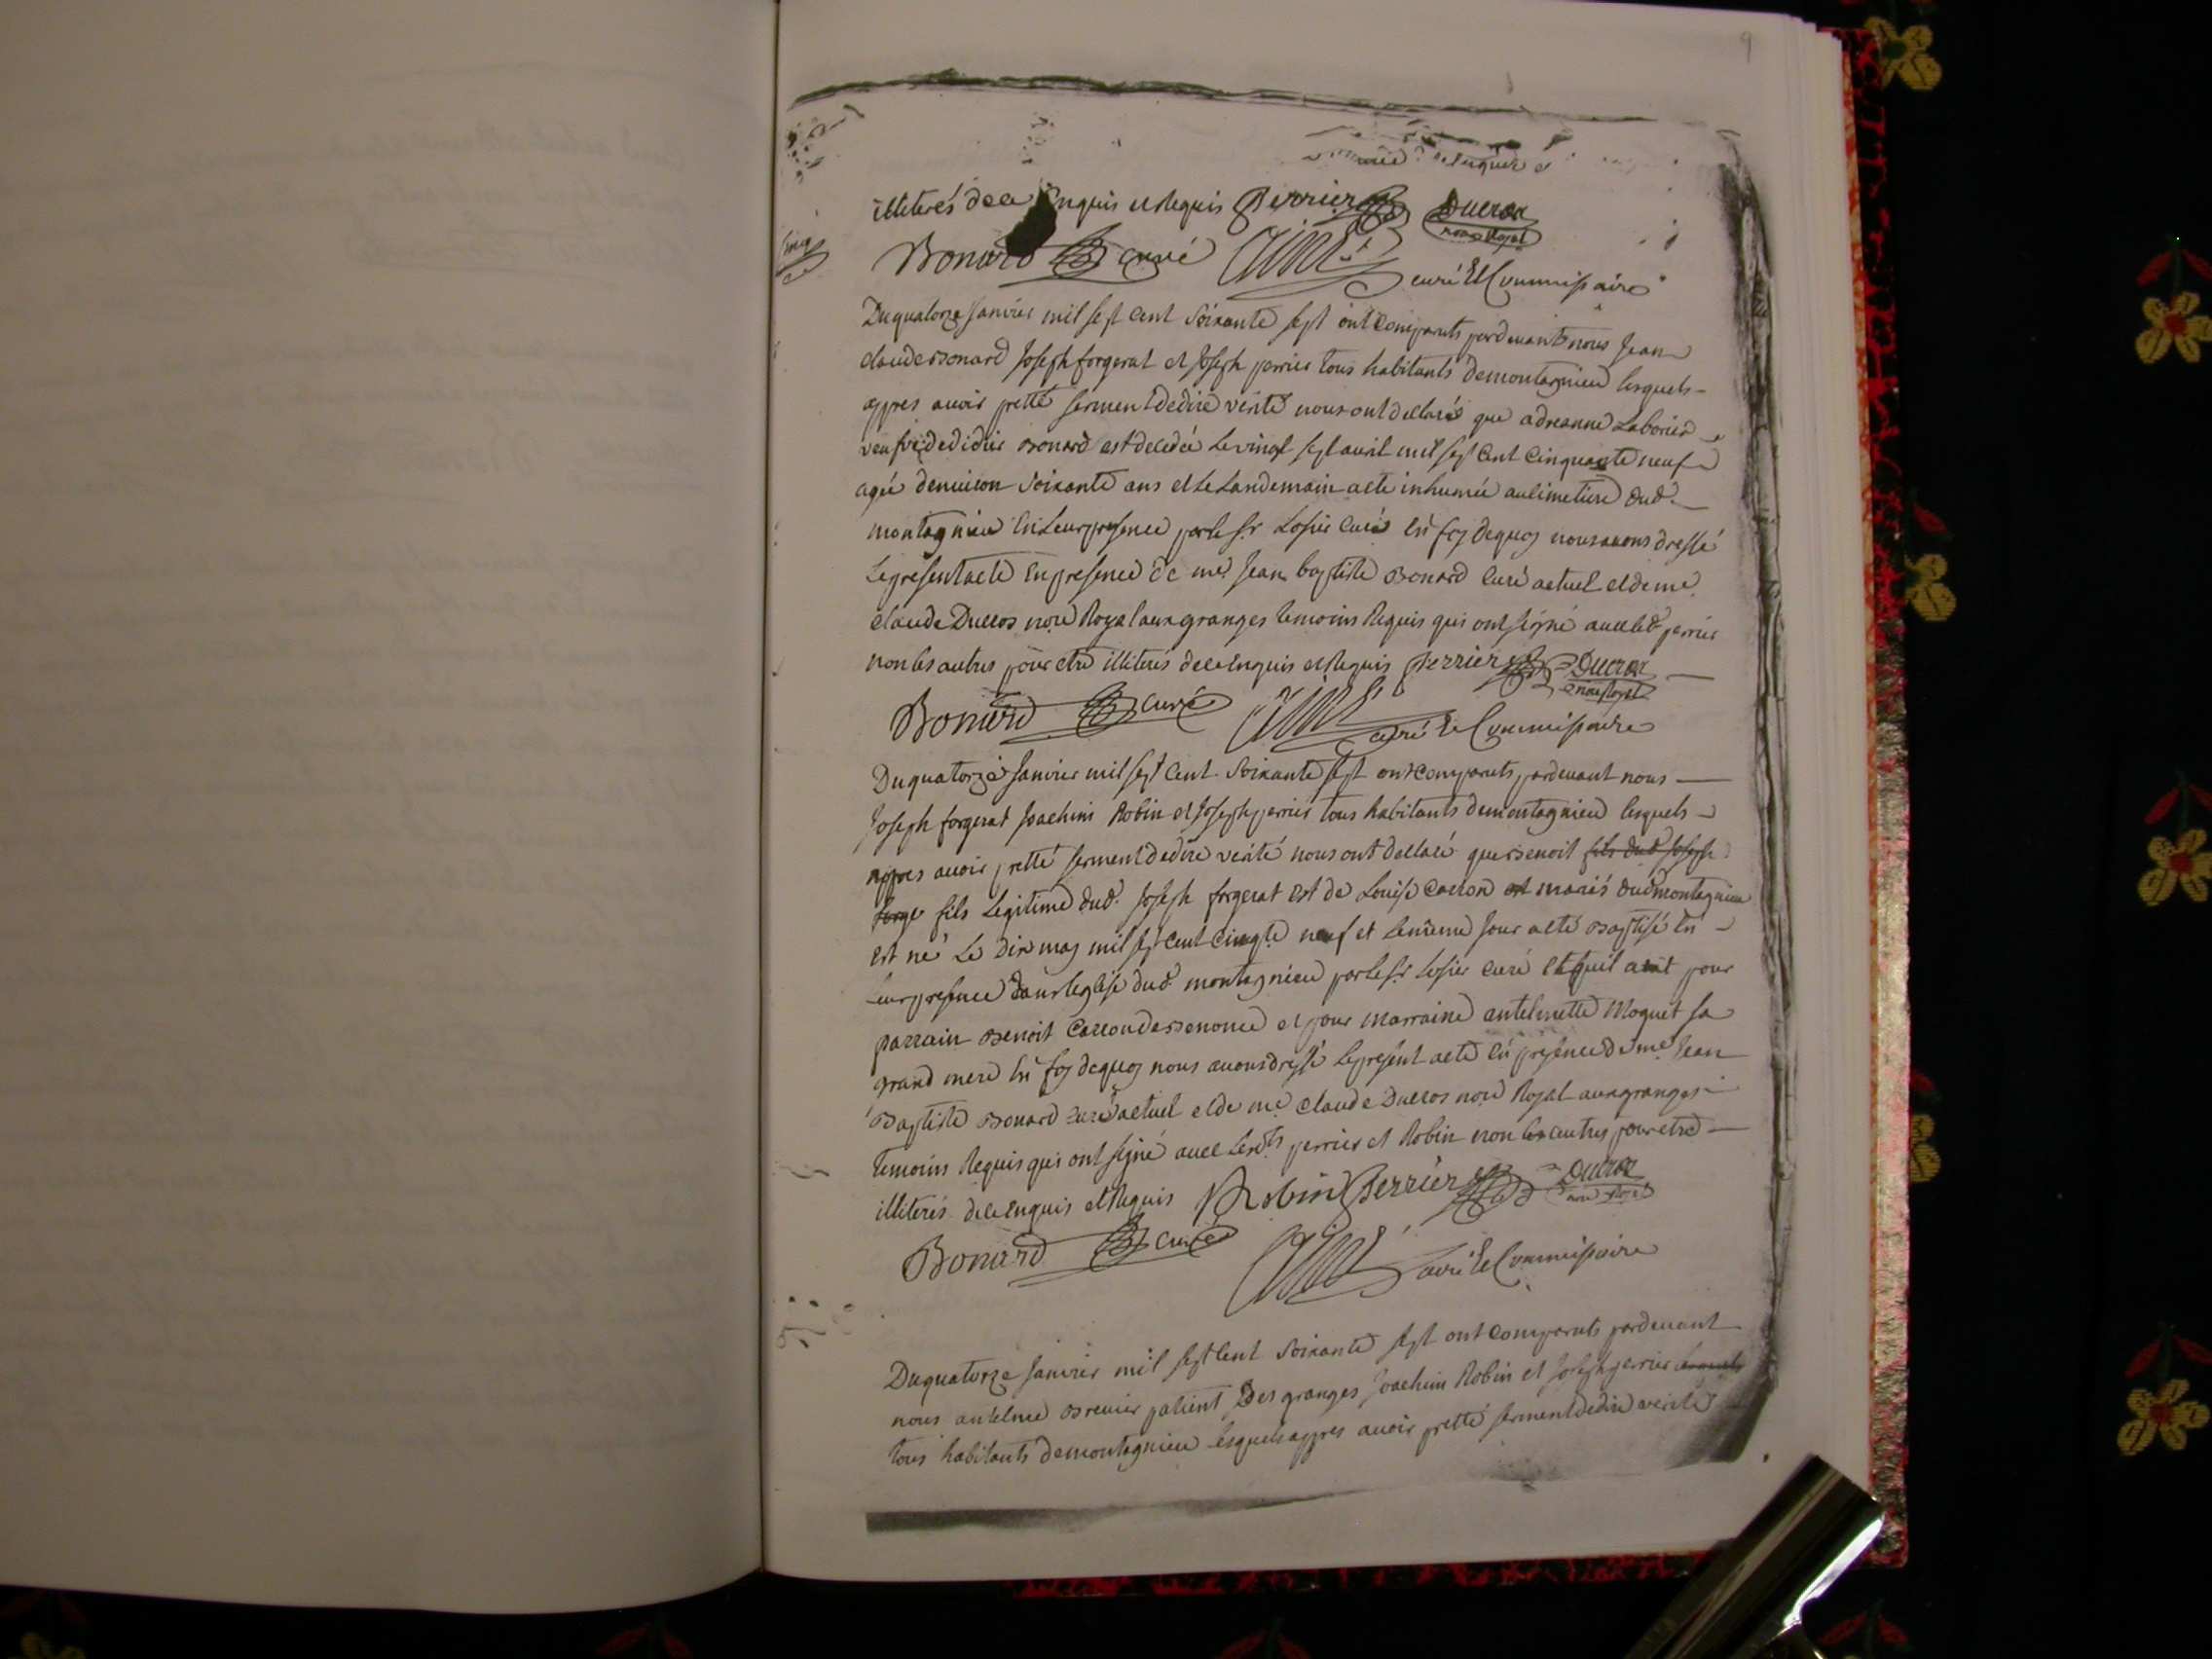 9
illiterés de ce Enquis et Requis Perrier Ducros
nore Royal
Bonard curé
curé Et Commissaire
Du quatorze Janvier mil sept cent Soixante sept ont comparuts pardevant nous Jean
claude Bonard Joseph forgerat et Joseph perrier tous habitants de montagnieu lesquels
appres avoir pretté serment de dire vérité nous ont declaré que adreanne Laborier
veufve de didier Bonard est decedée Le vingt sept avril mil sept Cent Cinquante neuf
agée denviron Soixante ans et Le Landemain a eté inhumée au Cimetiere dud.
montagnieu En Leur presence par le Sr Losier Curé En foy de quoy nous avons dressé
Le present acte En presence de me Jean baptiste Bonard Curé actuel et de me
claude Ducros nore Royal aux granges temoins Requis qui ont signé avec led. perrier
non les autres pour etre illiterés de ce Enquis et Requis Perrier Ducros
nore Royal
Bonard curé
curé Et Commissaire
Du quatorze Janvier mil sept Cent Soixante sept ont comparuts pardevant nous
Joseph forgerat Joachim Robin et Joseph perrier tous habitants de montagnieu lesquels
appres avoir pretté serment de dire vérité nous ont declaré que Benoit fils dud. Joseph
forge fils Legitime dud. Joseph forgerat et de Louise Carron et mariés dud montagnieu
est né Le Dix may mil sept Cent Cinqte neuf et le même Jour a eté Baptisé En
Leur presence Dans leglise dud. montagnieu par le Sr Losier Curé Et quil a eut pour
parrain Benoit Carron de Benonce et pour marraine antelmette Moquet sa
grand mere En foy de quoy nous avons dressé Le present acte En presence de me Jean
Baptiste Bonard curé actuel et de me claude Ducros nore Royal aux granges
temoins Requis qui ont signé avec Lesdts perrier et Robin non les autres pour etre
illiterés de ce Enquis et Requis Robin Perrier Ducros
nore Royal
Bonard curé
curé Et Commissaire
Du quatorze Janvier mil sept Cent Soixante sept ont comparuts pardevant
nous antelme Brenier patient Des granges Joachim Robin et Joseph perrier
tous habitants de montagnieu lesquels appres avoir pretté serment de dire verité